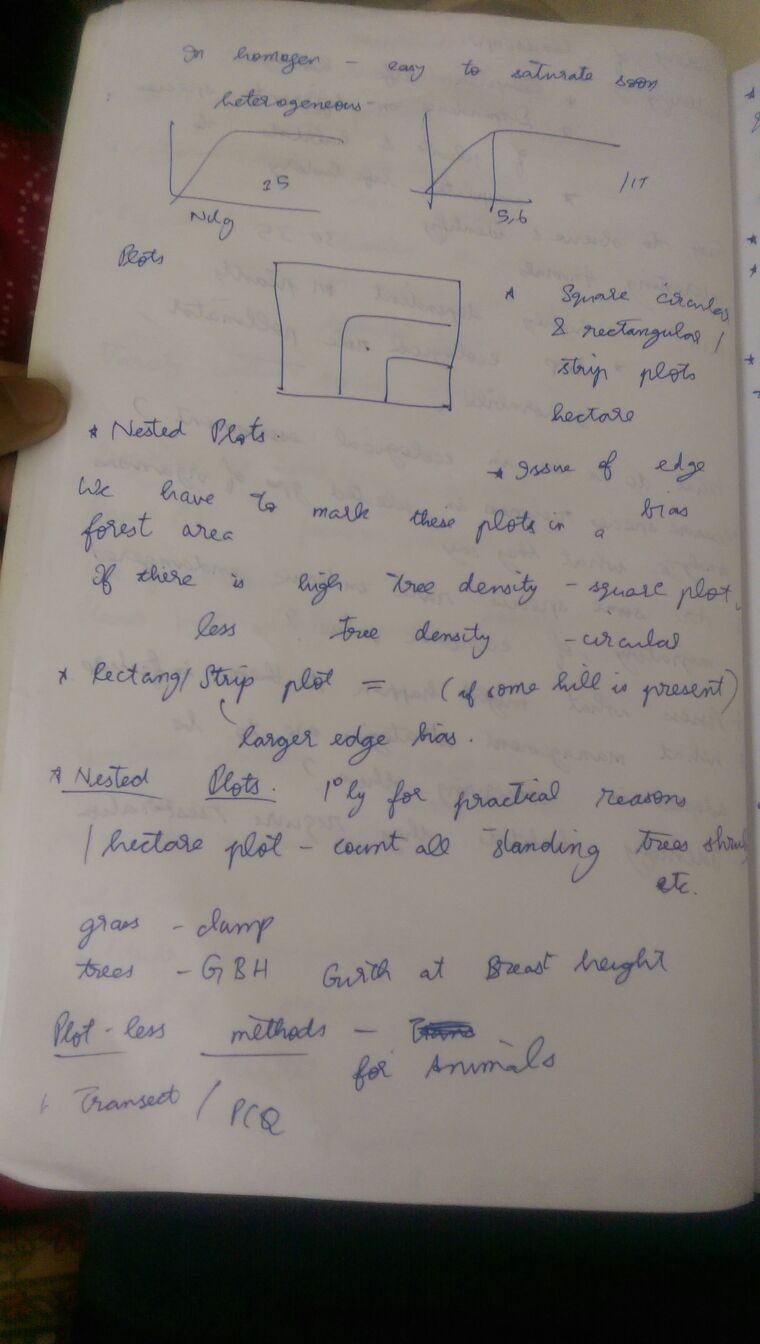 In homogen - easy to saturate soon
heterogeneous -
25
Ndg
5,6
/IT
Plots
* Square circular
& rectangular /
strip plots
hectare
* Nested Plots.
* Issue of edge
bias
We have to mark these plots in a
forest area
If there is high tree density - square plot.
less tree density - circular
* Rectang/ Strip plot = (if some hill is present)
larger edge bias.
* Nested Plots. 1°ly for practical reasons
1 hectare plot - count all standing trees shrub
etc.
grass - clump
trees - GBH Girth at Breast height
Plot-less methods -
for Animals
Transect / PCQ